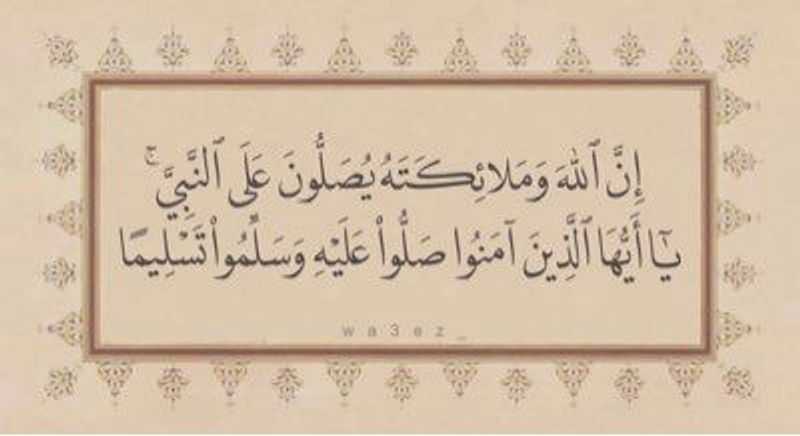 إِنَّ ٱللَّهَ وَمَلَائِكَتَهُ يُصَلُّونَ عَلَى ٱلنَّبِيِّ ۚ
يَٰٓا أَيُّهَا ٱلَّذِينَ آمَنُوا صَلُّوا۟ عَلَيْهِ وَسَلِّمُوا۟ تَسْلِيمًا
wa3ez_